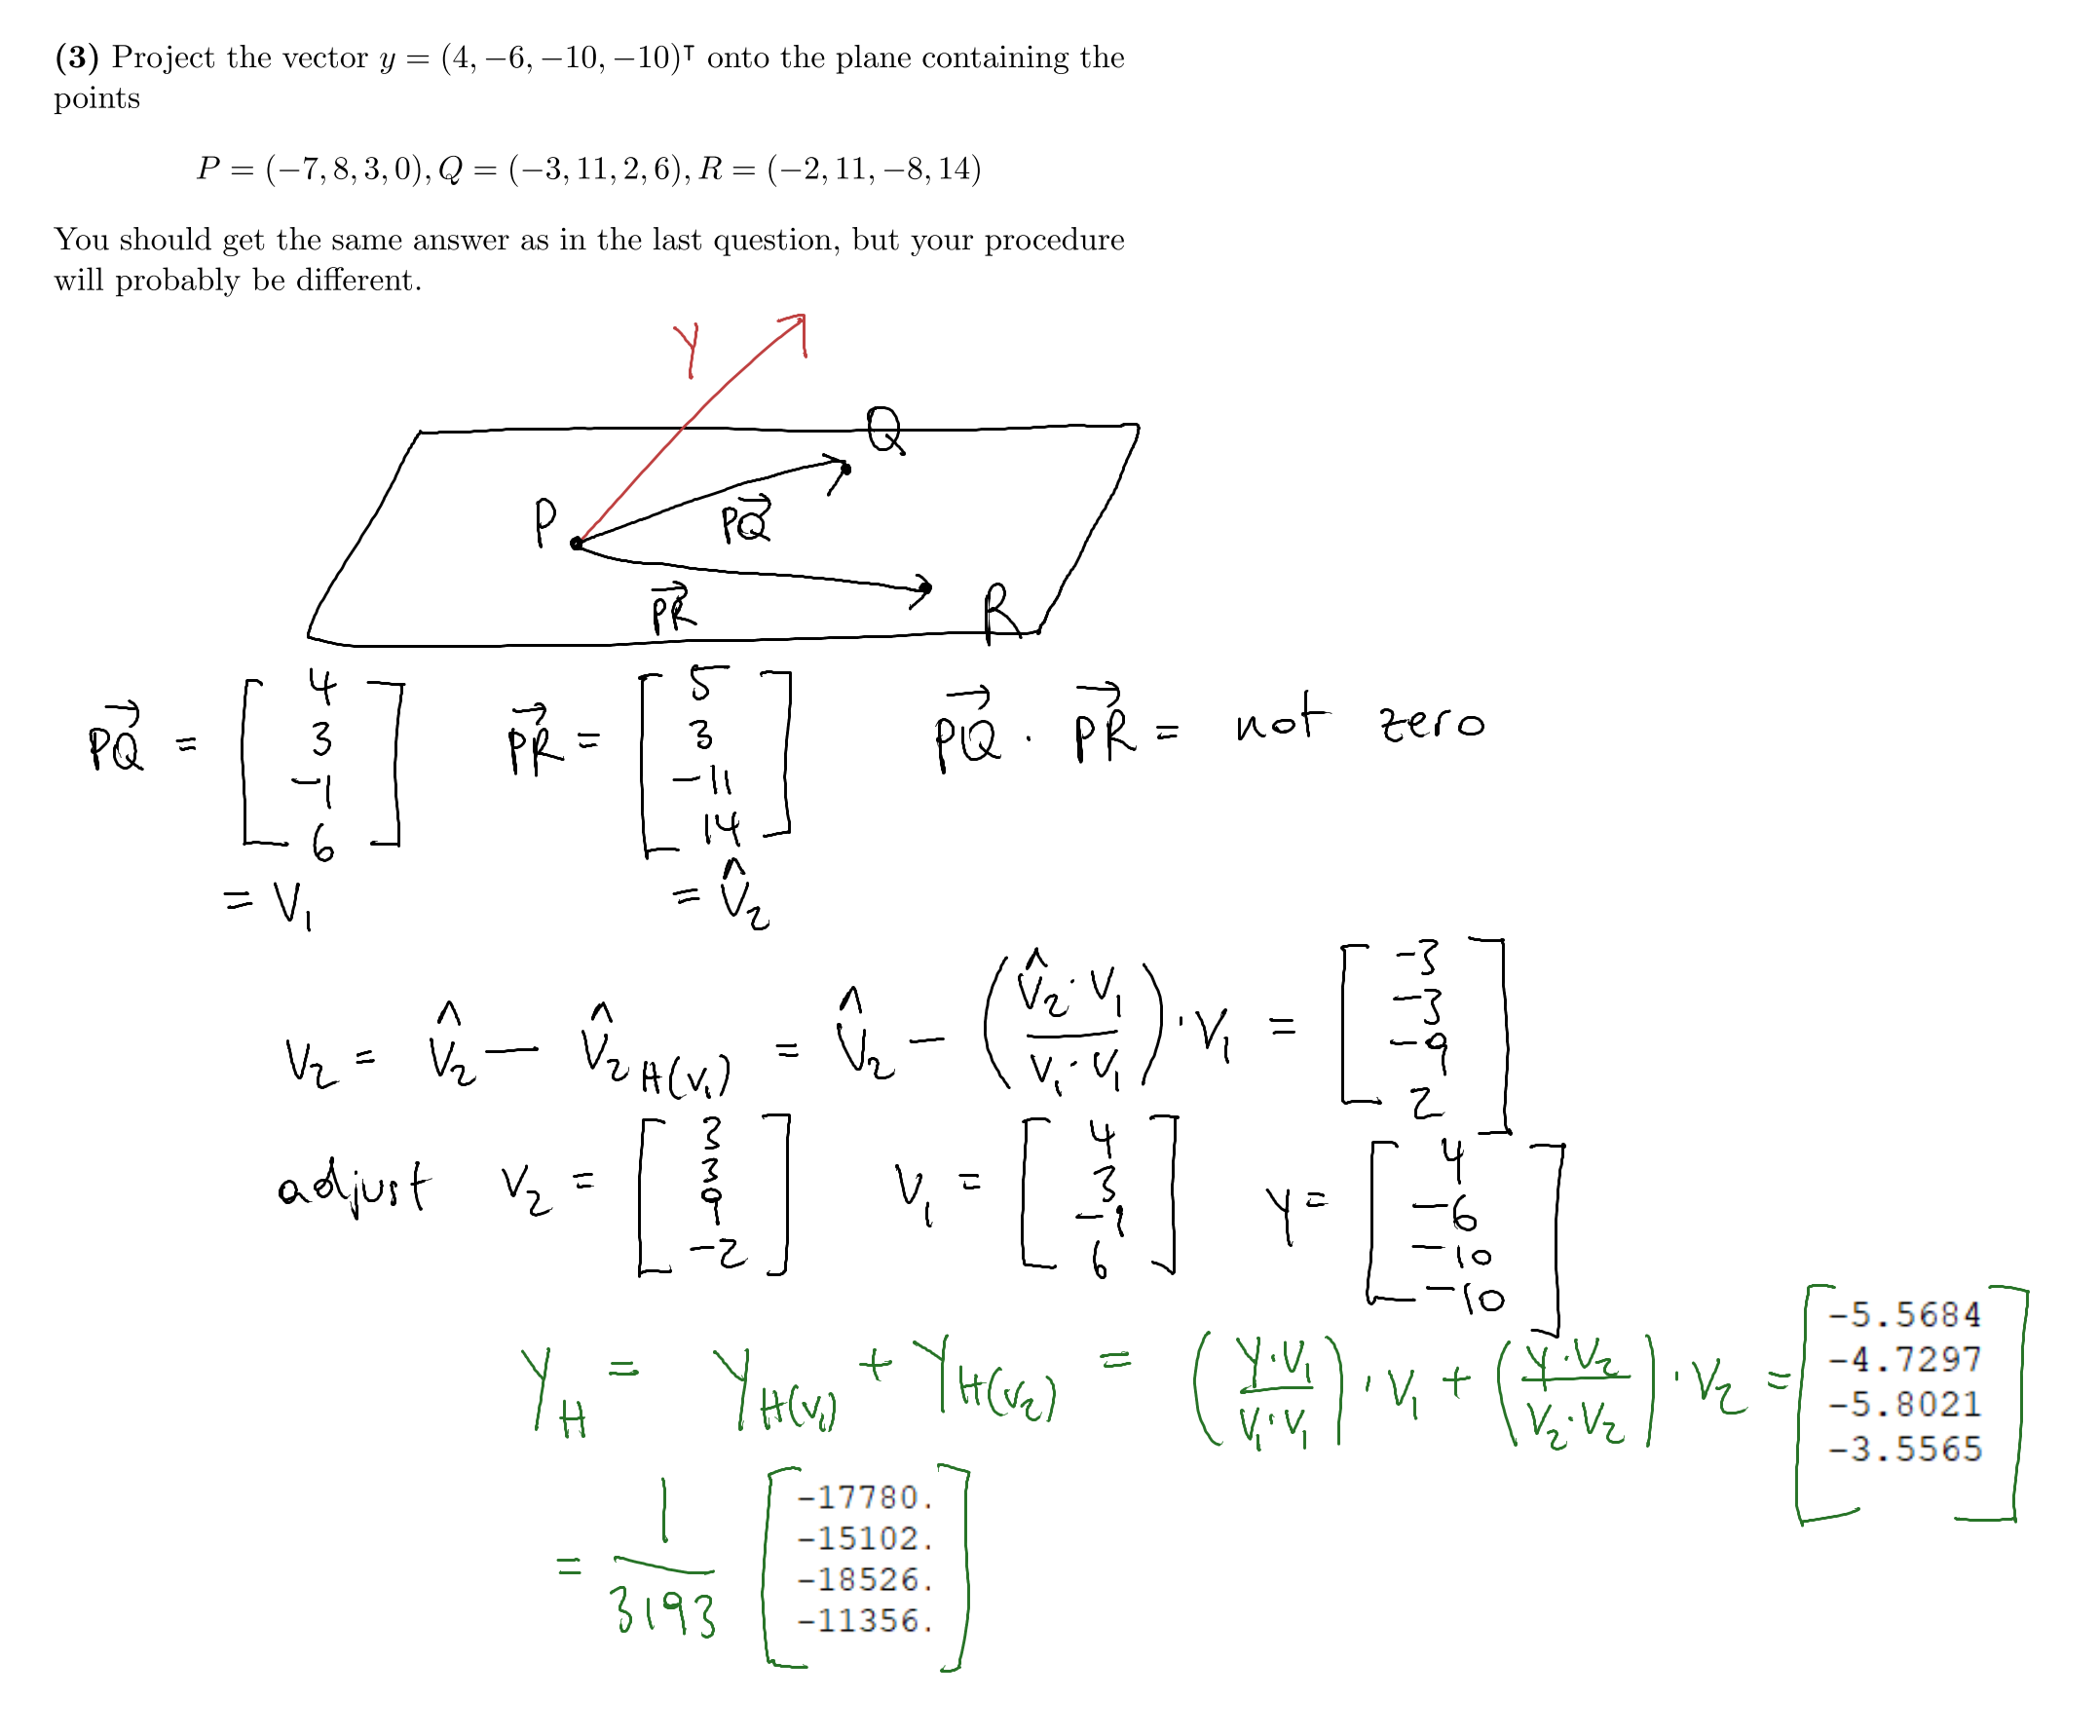 (3) Project the vector y = (4, −6, −10, −10)ᵀ onto the plane containing the
points
P = (−7, 8, 3, 0), Q = (−3, 11, 2, 6), R = (−2, 11, −8, 14)
You should get the same answer as in the last question, but your procedure
will probably be different.
Y
Q
P
PQ→
PR→
R
PQ→ = [4 3 -1 6] PR→ = [5 3 -11 14] PQ→ · PR→ = not zero
= V₁ = V̂₂
V₂ = V̂₂ − V̂₂ H(V₁) = V̂₂ − (V̂₂·V₁ / V₁·V₁)·V₁ = [-3 -3 -9 2]
adjust V₂ = [3 3 9 -2] V₁ = [4 3 -1 6] Y = [4 -6 -10 -10]
Y_H = Y_H(V₁) + Y_H(V₂) = (Y·V₁ / V₁·V₁)·V₁ + (Y·V₂ / V₂·V₂)·V₂ = [-5.5684 -4.7297 -5.8021 -3.5565]
= 1/3193 [-17780. -15102. -18526. -11356.]